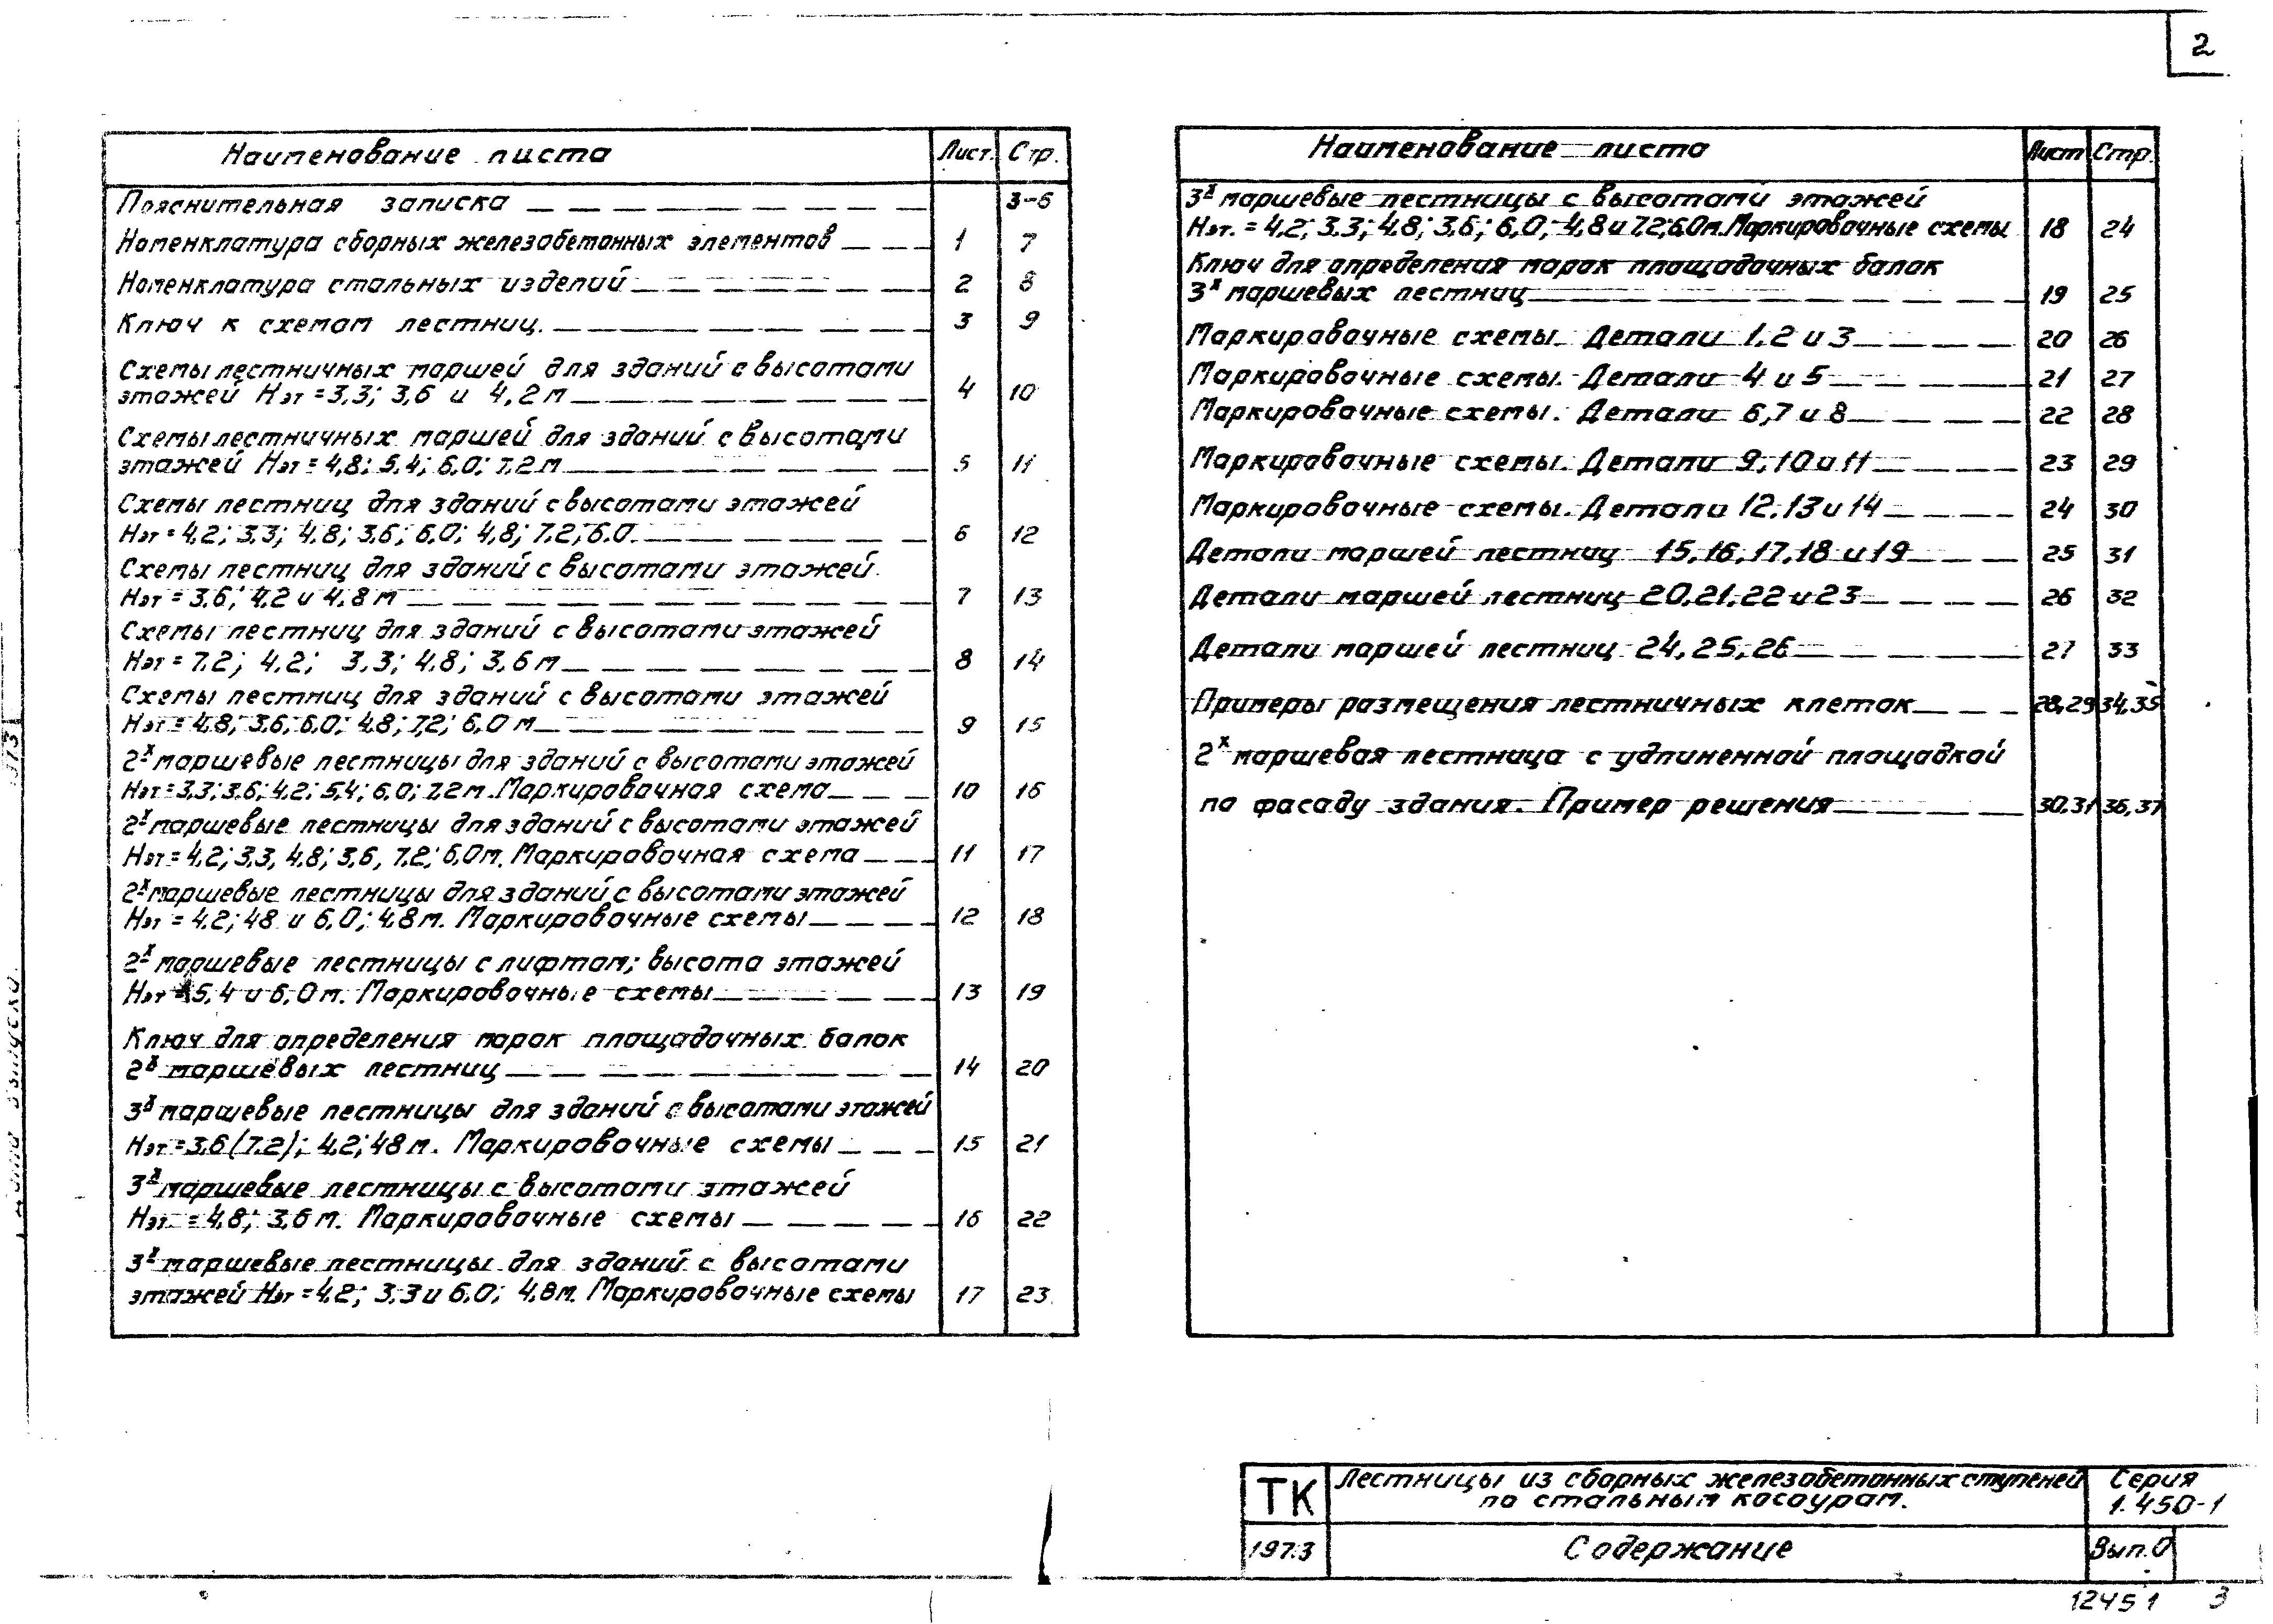 2
Наименование листа Лист. Стр.
Пояснительная записка 3-6
Номенклатура сборных железобетонных элементов 1 7
Номенклатура стальных изделий 2 8
Ключ к схемам лестниц. 3 9
Схемы лестничных маршей для зданий с высотами
этажей Нэт = 3,3; 3,6 и 4,2 м 4 10
Схемы лестничных маршей для зданий с высотами
этажей Нэт = 4,8; 5,4; 6,0; 7,2 м 5 11
Схемы лестниц для зданий с высотами этажей
Нэт = 4,2; 3,3; 4,8; 3,6; 6,0; 4,8; 7,2; 6.0. 6 12
Схемы лестниц для зданий с высотами этажей.
Нэт = 3,6; 4,2 и 4,8 м 7 13
Схемы лестниц для зданий с высотами этажей
Нэт = 7.2; 4,2; 3,3; 4,8; 3,6 м 8 14
Схемы лестниц для зданий с высотами этажей
Нэт = 4,8; 3,6; 6,0; 4,8; 7,2; 6,0 м 9 15
2х маршевые лестницы для зданий с высотами этажей
Нэт = 3,3; 3,6; 4,2; 5,4; 6,0; 7,2 м. Маркировачная схема 10 16
2х маршевые лестницы для зданий с высотами этажей
Нэт = 4,2; 3,3, 4,8; 3,6, 7,2; 6,0м. Маркировочная схема 11 17
2х маршевые лестницы для зданий с высотами этажей
Нэт = 4.2; 48 и 6,0; 4,8 м. Маркировочные схемы 12 18
2х маршевые лестницы с лифтам; высота этажей
Нэт = 5,4 и 6,0 м. Маркировочные схемы 13 19
Ключ для определения марок площадочных балок
2х маршевых лестниц 14 20
3х маршевые лестницы для зданий с высотами этажей
Нэт = 3,6 (7.2); 4,2; 48 м. Маркировочные схемы 15 21
3х маршевые лестницы с высотами этажей
Нэт. = 4,8; 3,6 м. Маркировочные схемы 16 22
3х маршевые лестницы для зданий с высотами
этажей Нэт = 4,2; 3,3 и 6,0; 4,8м. Маркировочные схемы 17 23
Наименование листа Лист Стр.
3х маршевые лестницы с высотами этажей
Нэт. = 4,2; 3,3; 4,8; 3,6; 6,0; 4,8 и 7,2; 6,0м. Маркировочные схемы 18 24
Ключ для определения марок площадочных балок
3х маршевых лестниц 19 25
Маркировочные схемы. Детали 1, 2 и 3 20 26
Маркировочные схемы. Детали 4 и 5 21 27
Маркировочные схемы. Детали 6, 7 и 8 22 28
Маркировочные схемы. Детали 9, 10 и 11 23 29
Маркировочные схемы. Детали 12, 13 и 14 24 30
Детали маршей лестниц 15, 16, 17, 18 и 19 25 31
Детали маршей лестниц 20, 21, 22 и 23 26 32
Детали маршей лестниц 24, 25, 26 27 33
Примеры размещения лестничных клеток 28,29 34,35
2х маршевая лестница с удлиненной площадкой
по фасаду здания. Пример решения 30,31 36,37
ТК Лестницы из сборных железобетонных ступеней
по стальным косоурам.
Серия
1.450-1
1973 Содержание Вып. 0
12451 3